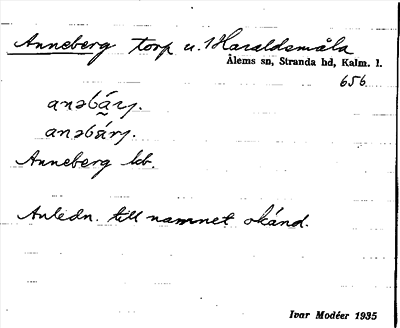 Anneberg torp u. Haraldsmåla
Ålems sn, Stranda hd, Kalm. l.
656
anəbárj.
anəbárj.
Anneberg kb.
Anledn. till namnet okänd.
Ivar Modéer 1935